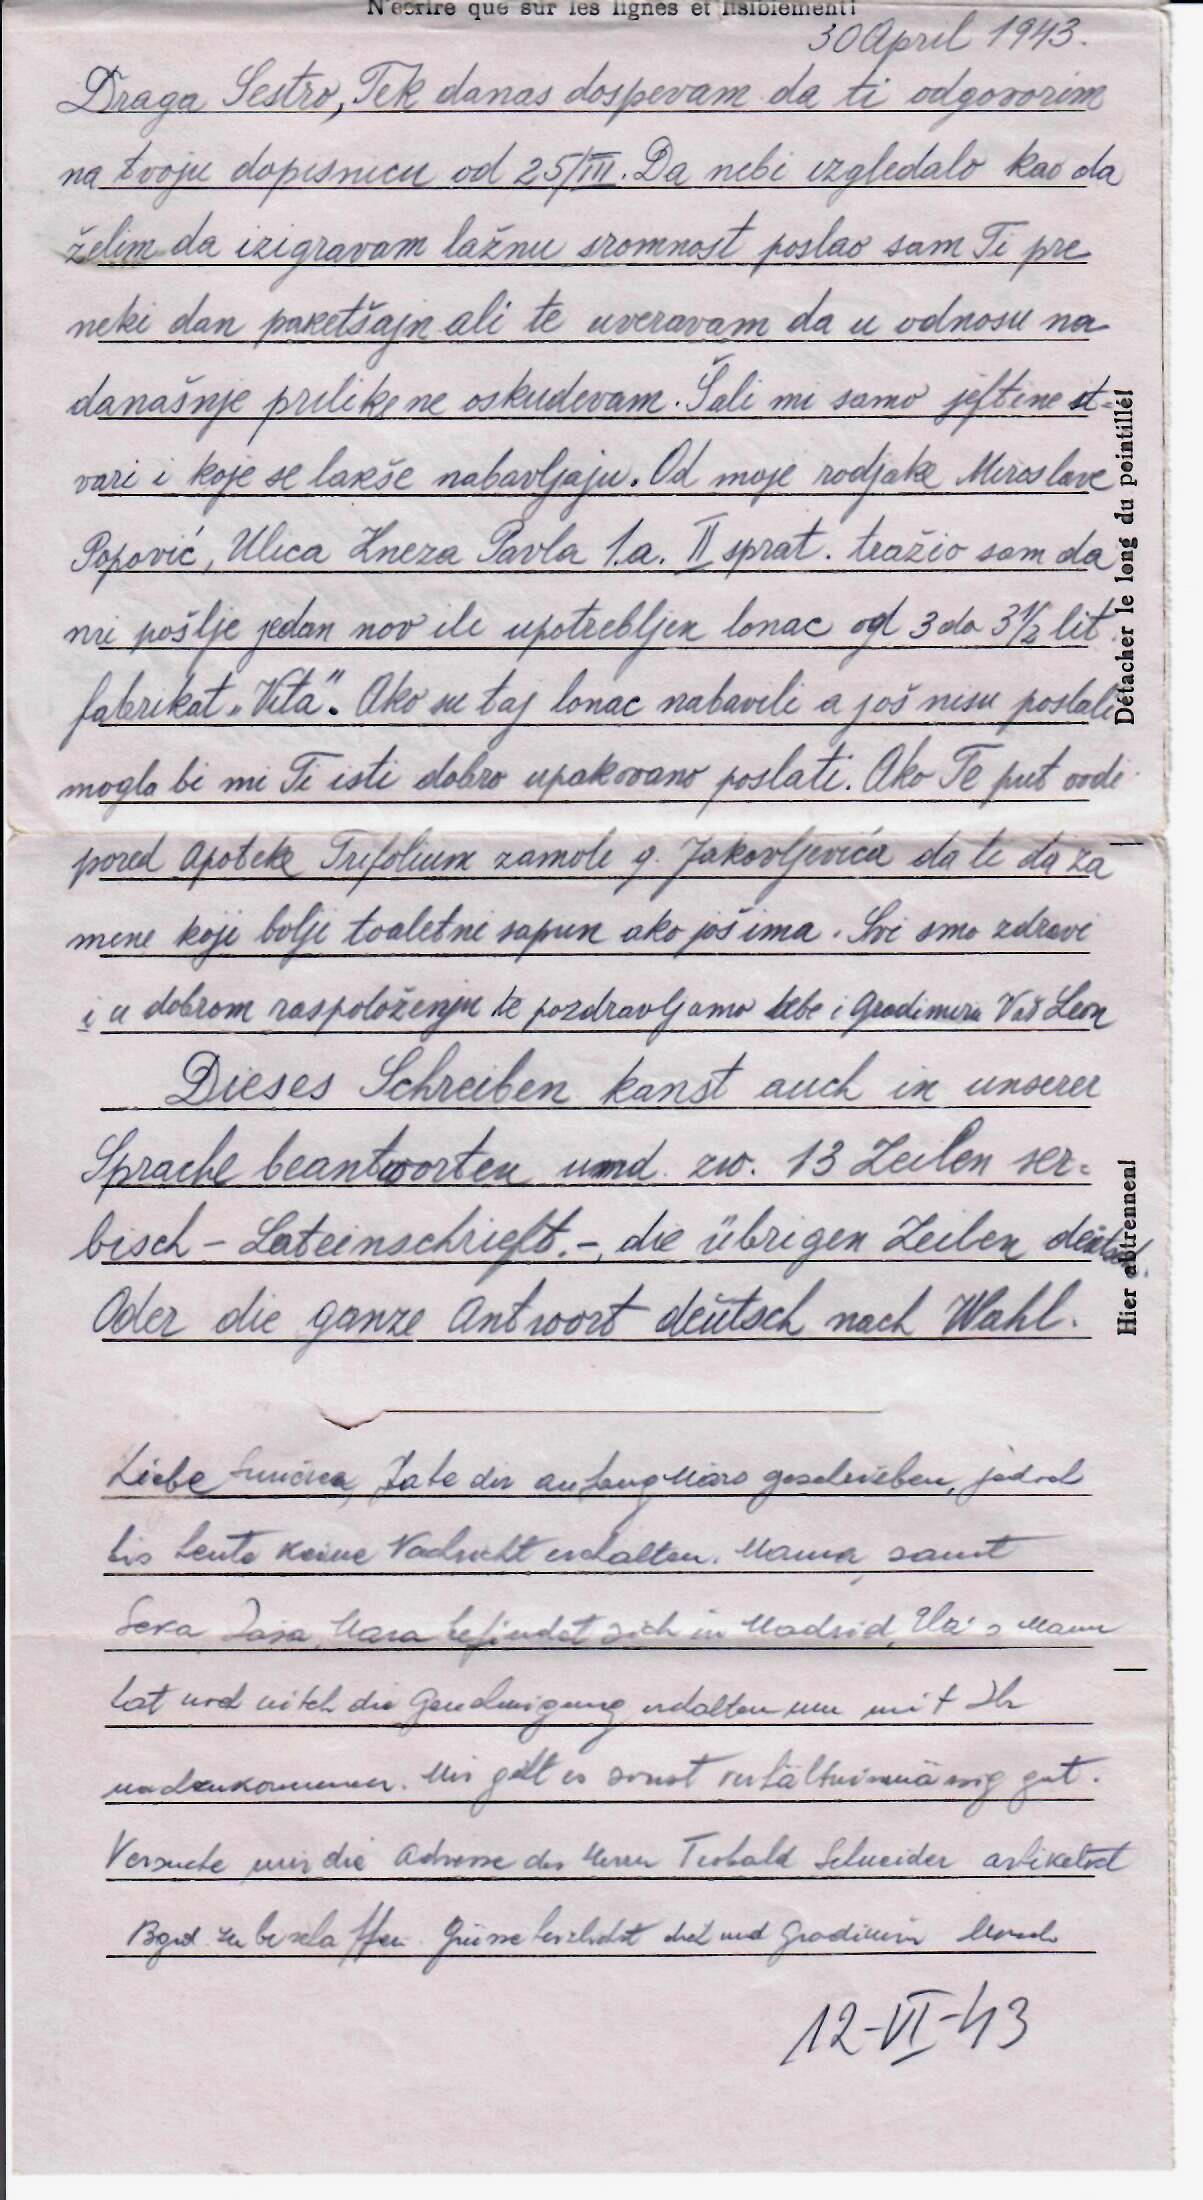 N'écrire que sur les lignes et lisiblement!
30 April 1943.
Draga Sestro, Tek danas dospevam da ti odgovorim
na tvoju dopisnicu od 25/III. Da nebi izgledalo kao da
želim da izigravam lažnu sromnost poslao sam Ti pre
neki dan paketšajn ali te uveravam da u odnosu na
današnje prilike ne oskudevam. Šali mi samo jeftine st=
vari i koje se lakše nabavljaju. Od moje rodjake Miroslave
Popović, Ulica Kneza Pavla 1.a. II sprat. tražio sam da
mi pošlje jedan nov ili upotrebljen lonac od 3 do 3½ lit.
fabrikat „Vita". Ako su taj lonac nabavili a još nisu poslali
mogla bi mi Ti isti dobro upakovano poslati. Ako Te put vodi
pored Apoteke Trifolium zamoli g. Jakovljevića da ti da za
mene koji bolji toaletni sapun ako još ima. Svi smo zdravi
i u dobrom raspoloženju te pozdravljamo tebe i Gradimira Vaš Leon
Dieses Schreiben kanst auch in unserer
Sprache beantworten und zw. 13 Zeilen ser=
bisch - Lateinschrieft. -, die übrigen Zeilen deutsch.
Oder die ganze Antwort deutsch nach Wahl.
Détacher le long du pointillé!
Hier abtrennen!
Liebe habe dir anfang März geschrieben, jedoch
bis heute keine Nachricht erhalten. Mama, samt
Seka Mara befindet sich in Madrid, Mann
hat noch nitch die Genehmigung erhalten um mit Ihr
Mir geht es sonst verhältnismässig gut.
Versuche mir die Adresse des Herrn Teobald Schneider
Bgrd. zu beschaffen. Grüsse herzlichst dich und Gradimir
12-VI-43